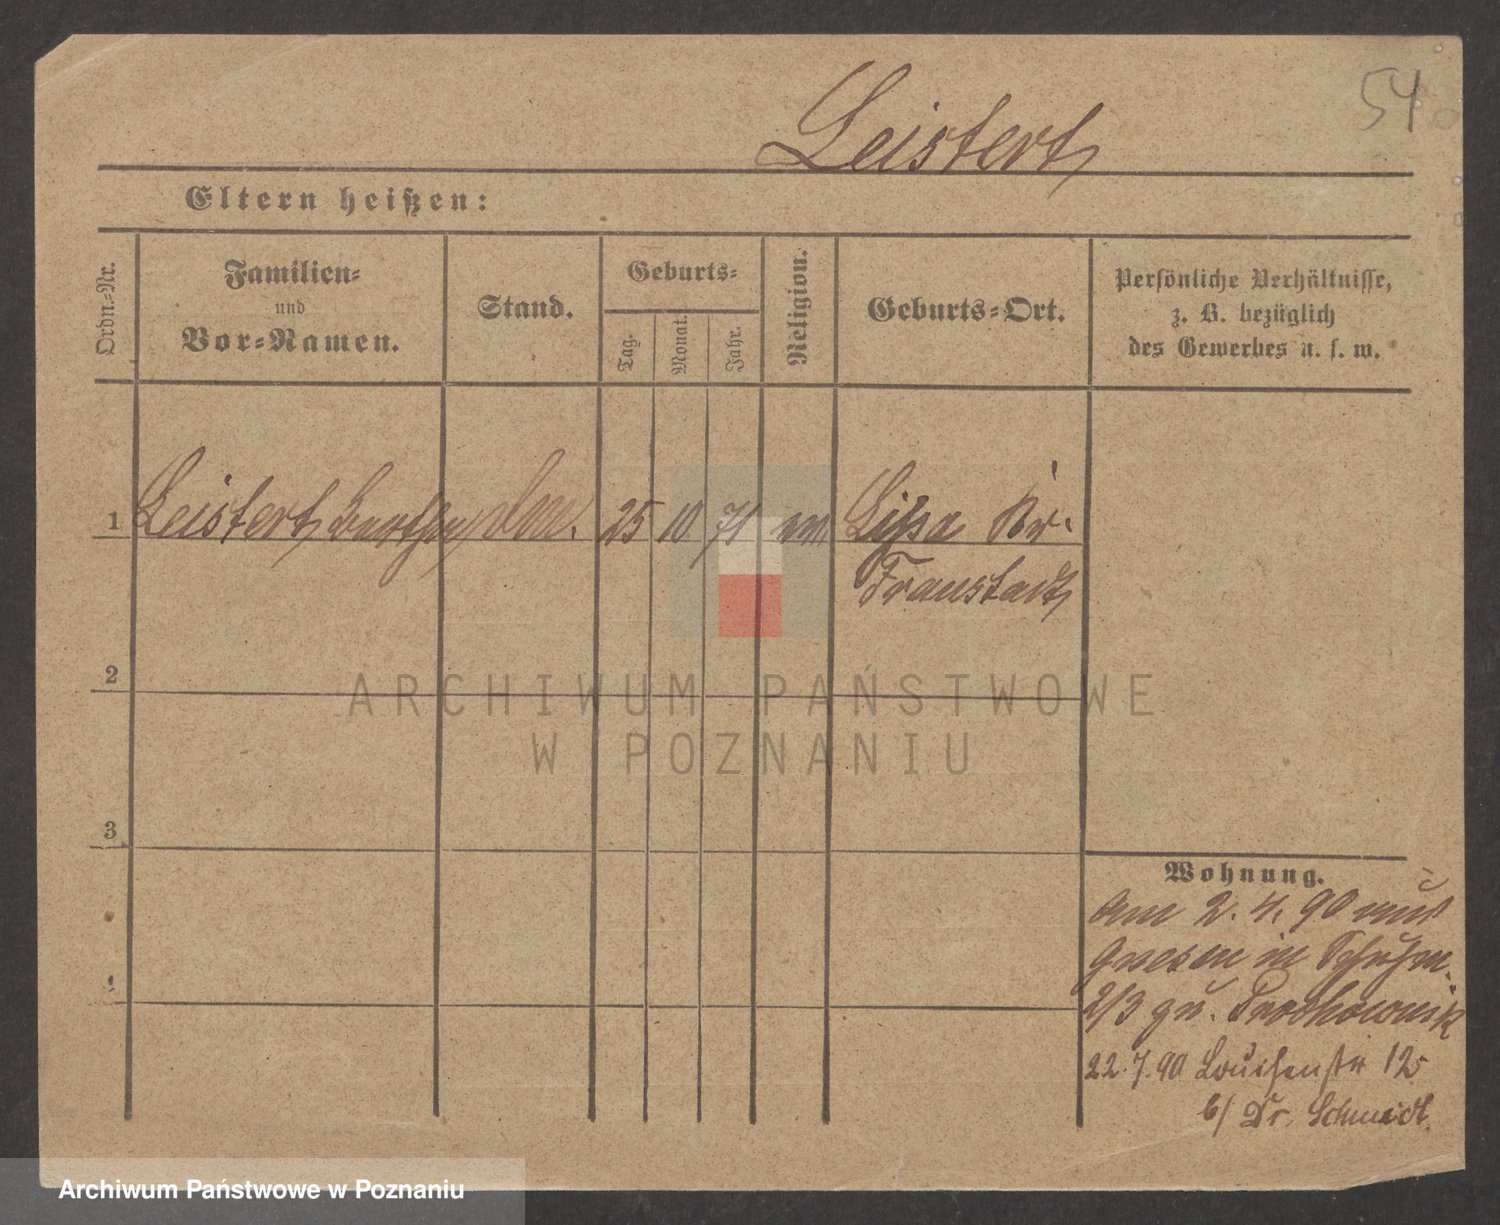 54
Leistert
Eltern heißen:
Ordn.-Nr.
Familien-
und
Vor-Namen.
Stand.
Geburts-
Tag.
Monat.
Jahr.
Religion.
Geburts-Ort.
Persönliche Verhältnisse,
z. B. bezüglich
des Gewerbes u. s. w.
1 Leistert 25 10 71 Lissa Kr.
Fraustadt
2
3
4
Wohnung.
am 2. 4. 90 aus
Gnesen in Schuhm.
2/3 zu. Prochownik
22.7.90 Louisenstr 12
b/ Dr. Schmidt.
ARCHIWUM PAŃSTWOWE
W POZNANIU
Archiwum Państwowe w Poznaniu